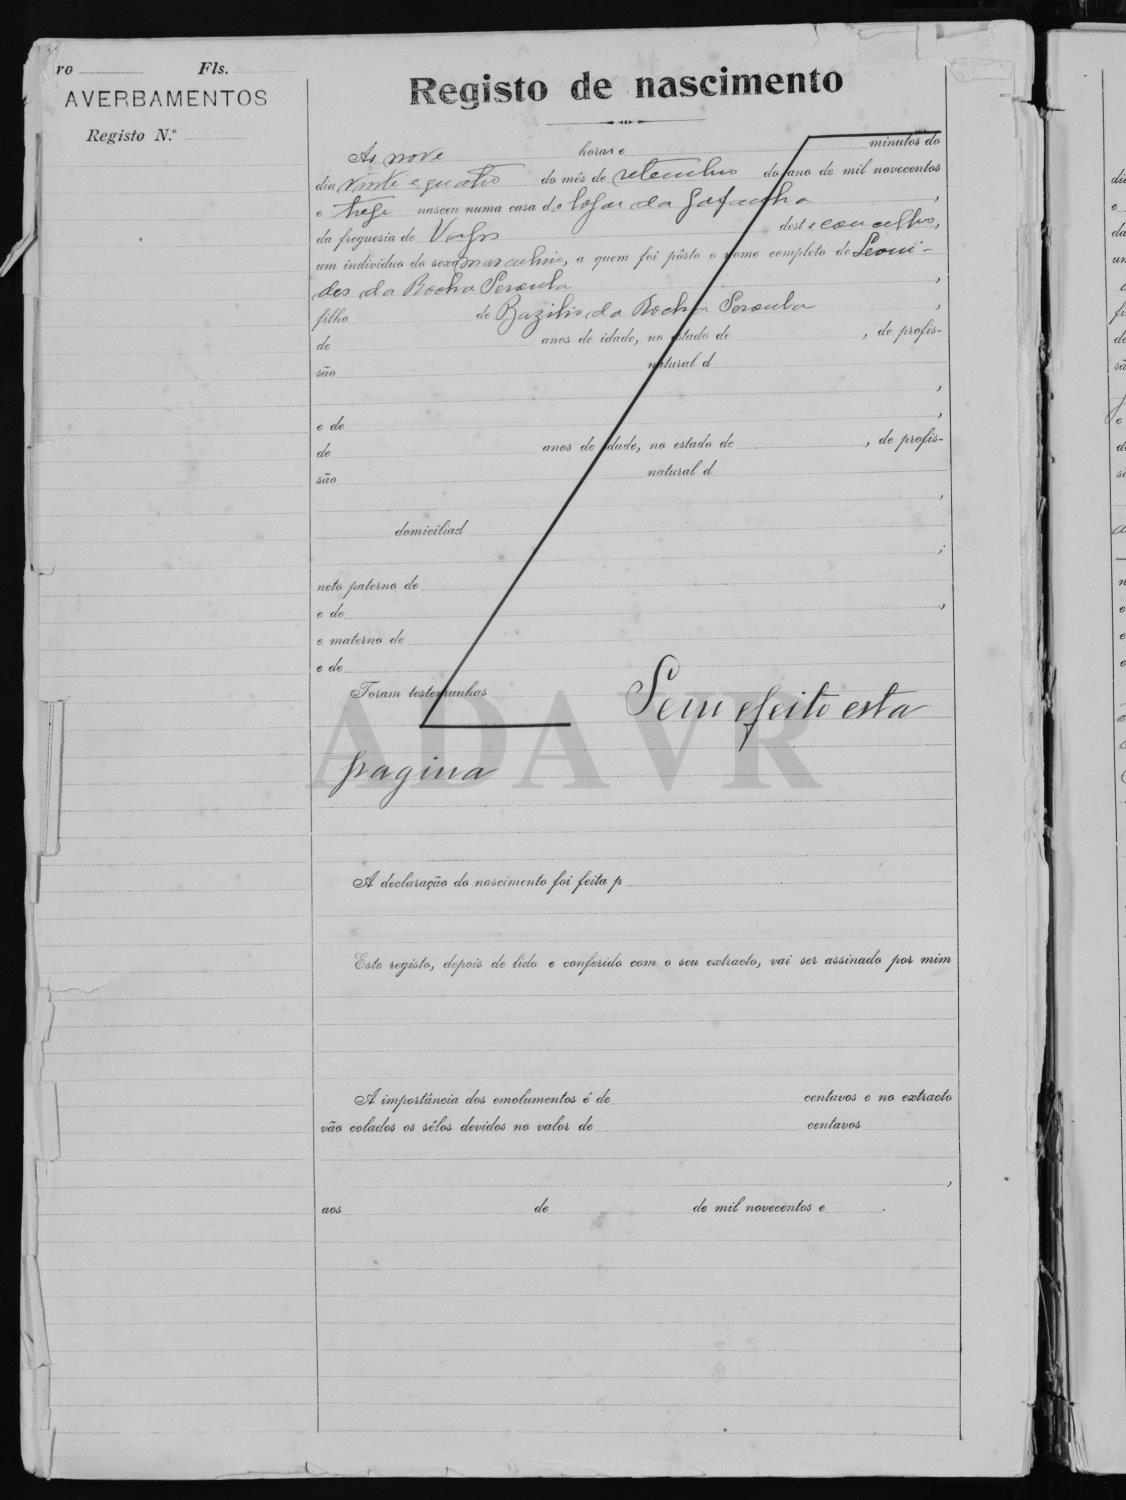 ro Fls.
AVERBAMENTOS
Registo N.º
Registo de nascimento
Ás nove horas e minutos do
dia vinte e quatro do mês de setembro do ano de mil novecentos
e treze nasceu numa casa do logar da Gafanha,
da freguesia de Vagos deste concelho,
um individuo do sexo masculino, a quem foi pôsto o nome completo de Leoni-
des da Rocha
filho de Bazilio da Rocha,
de anos de idade, no estado de, de profis-
são natural d
,
e de,
de anos de idade, no estado de, de profis-
são natural d
,
domiciliad
;
neto paterno de
e de,
e materno de
e de
Foram testemunhas Sem efeito esta
pagina
ADAVR
A declaração do nascimento foi feita p
Este registo, depois de lido e conferido com o seu extracto, vai ser assinado por mim
A importância dos emolumentos é de centavos e no extracto
vão colados os sêlos devidos no valor de centavos
,
aos de de mil novecentos e.